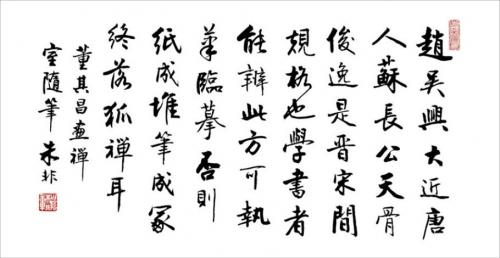 趙吳興大近唐
人蘇長公天骨
俊逸是晋宋間
規格也學書者
能辯此方可執
筆臨摹否則
紙成堆筆成冢
終落狐禅耳
董其昌畫禅
室隨筆 朱非